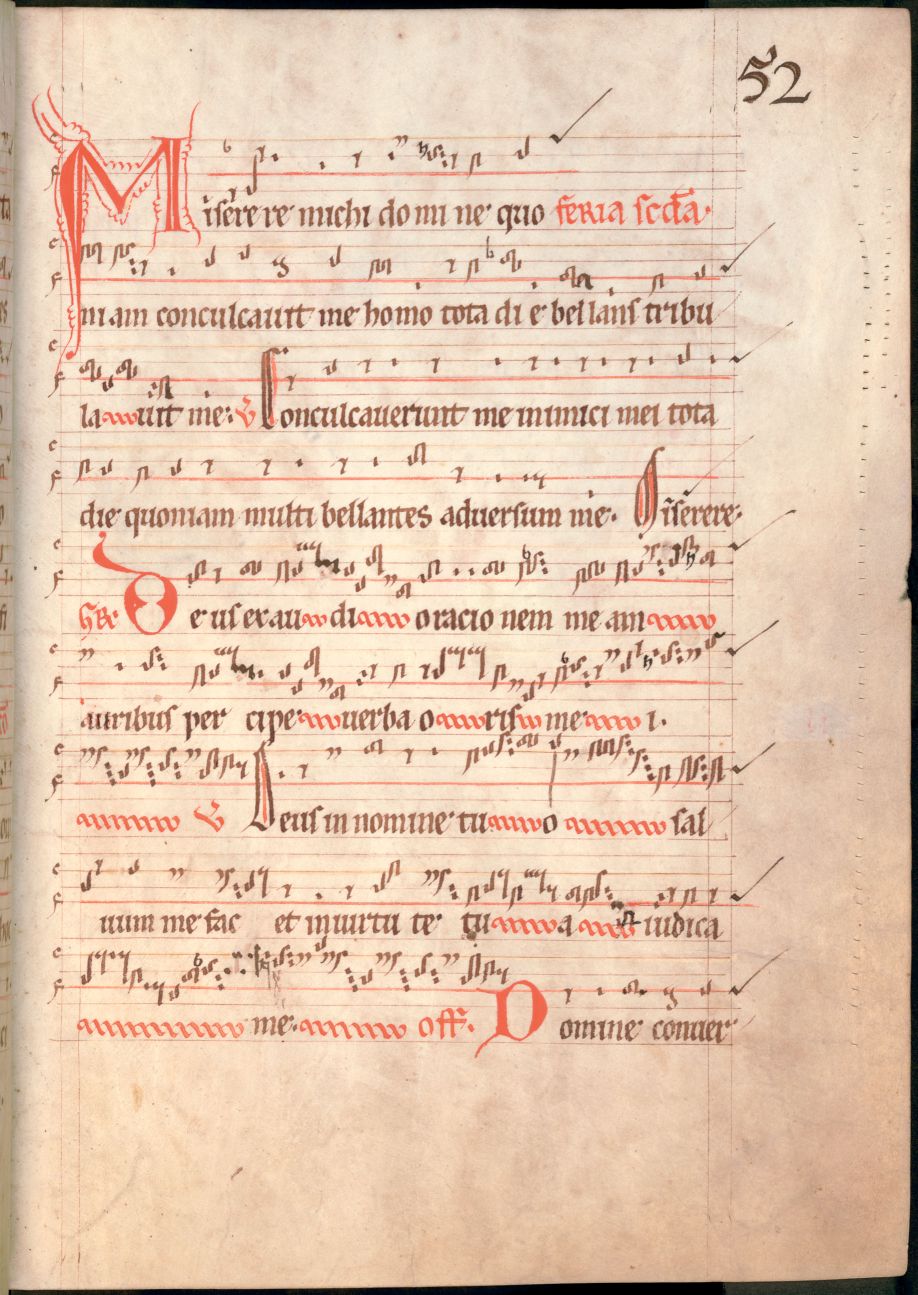 52
Misere re re michi do mi ne quo feria scda.
niam conculcauit me homo tota di e bellans tribu
la uit me. V Conculcauerunt me inimici mei tota
die quoniam multi bellantes aduersum me. Miserere.
Gr De us ex au di oracio nem me am
auribus per cipe uerba o ris me i.
V Deus in nomine tu o sal
uum me fac et in uirtu te tu a iudica
me. off. Domine conuer